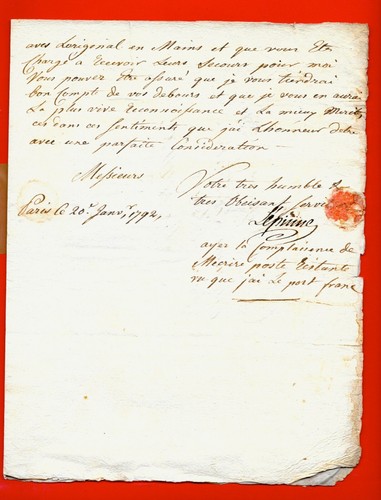 avés Lorigenal en Mains et que vous Ete
Chargé a Recevoir Leurs Secours pour moi
Vous pouvez être assuré que je vous tiendrai
bon Compte de vos debours et que je vous en aurai
La plus vive Reconnoissance et La mieux Merité
cés dans ces Sentiments que j'ai Lhonneur detre
avec une parfaite Consideration
Messieurs
Votre tres humble &
tres Obeisant Servi
Paris Le 20 Janvr 1792,
ayez la Complaisance de
Mecrire poste Restante
vu que jai Le port franc